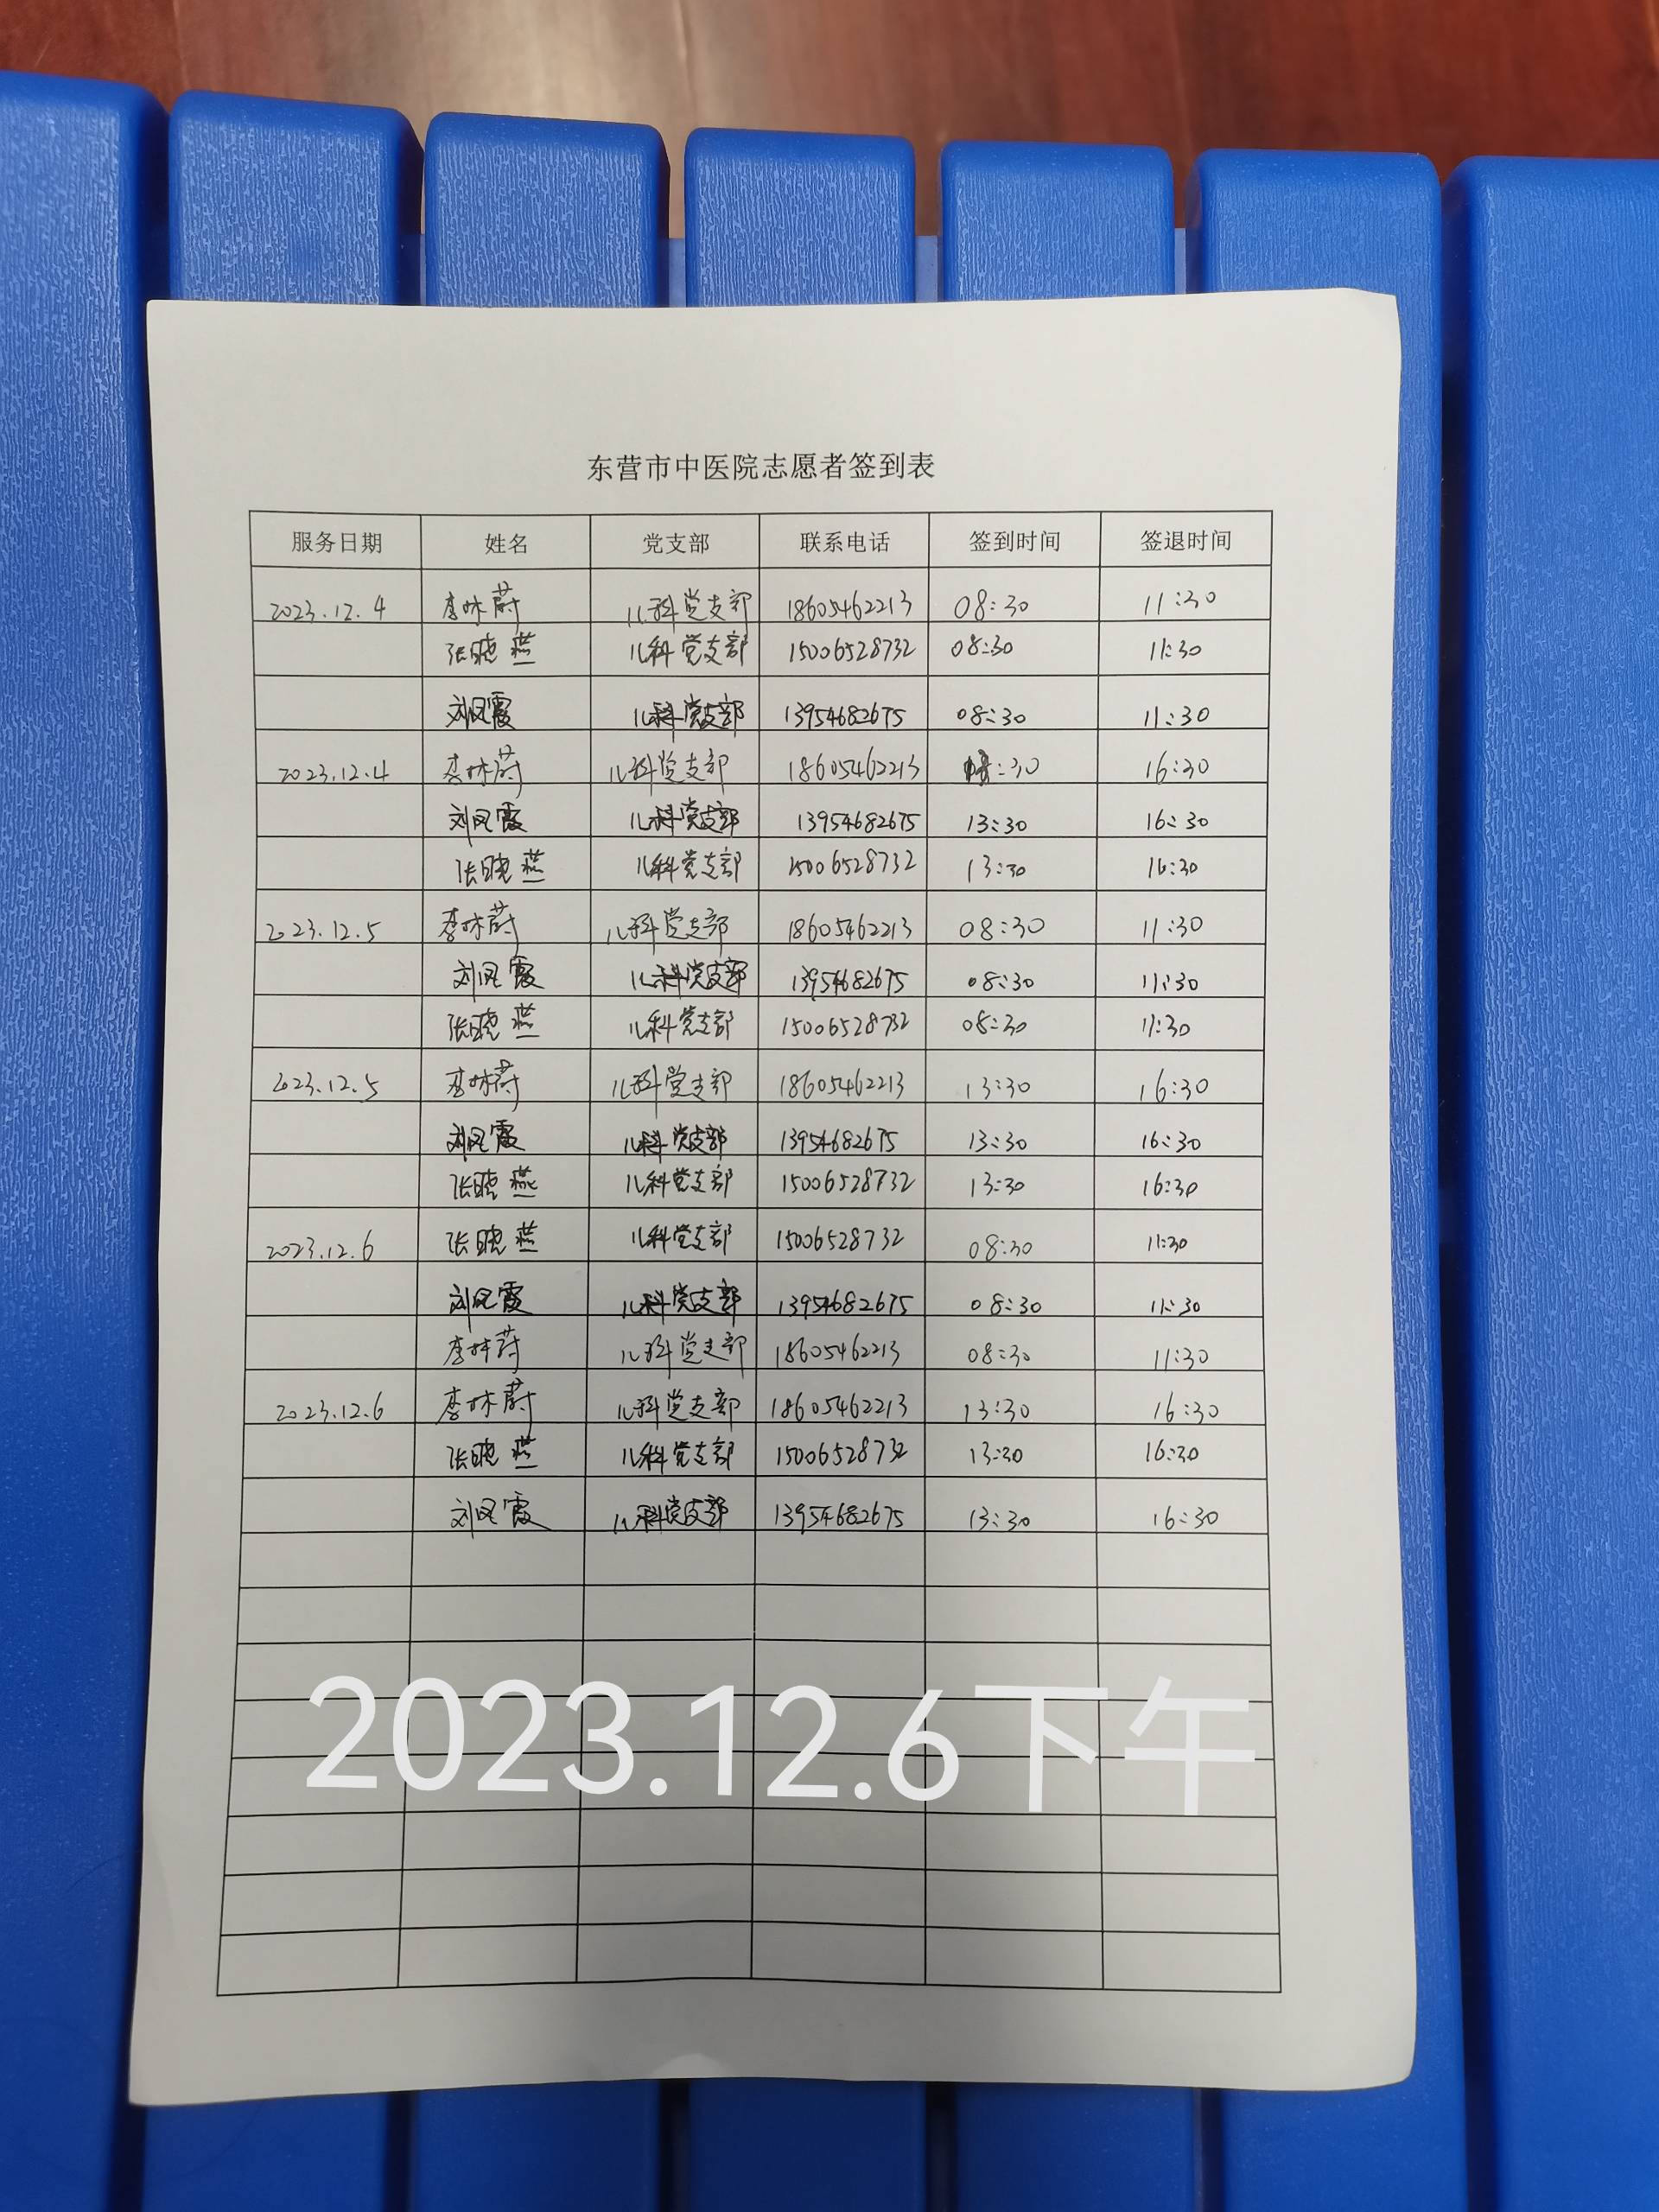 东营市中医院志愿者签到表
服务日期 姓名 党支部 联系电话 签到时间 签退时间
2023.12.4 李林蔚 儿科党支部 18605462213 08:30 11:30
张晓燕 儿科党支部 15006528732 08:30 11:30
刘凤霞 儿科党支部 13954682675 08:30 11:30
2023.12.4 李林蔚 儿科党支部 18605462213 :30 16:30
刘凤霞 儿科党支部 13954682675 13:30 16:30
张晓燕 儿科党支部 15006528732 13:30 16:30
2023.12.5 李林蔚 儿科党支部 18605462213 08:30 11:30
刘凤霞 儿科党支部 13954682675 08:30 11:30
张晓燕 儿科党支部 15006528732 08:30 11:30
2023.12.5 李林蔚 儿科党支部 18605462213 13:30 16:30
刘凤霞 儿科党支部 13954682675 13:30 16:30
张晓燕 儿科党支部 15006528732 13:30 16:30
2023.12.6 张晓燕 儿科党支部 15006528732 08:30 11:30
刘凤霞 儿科党支部 13954682675 08:30 11:30
李林蔚 儿科党支部 18605462213 08:30 11:30
2023.12.6 李林蔚 儿科党支部 18605462213 13:30 16:30
张晓燕 儿科党支部 15006528732 13:30 16:30
刘凤霞 儿科党支部 13954682675 13:30 16:30
2023.12.6下午